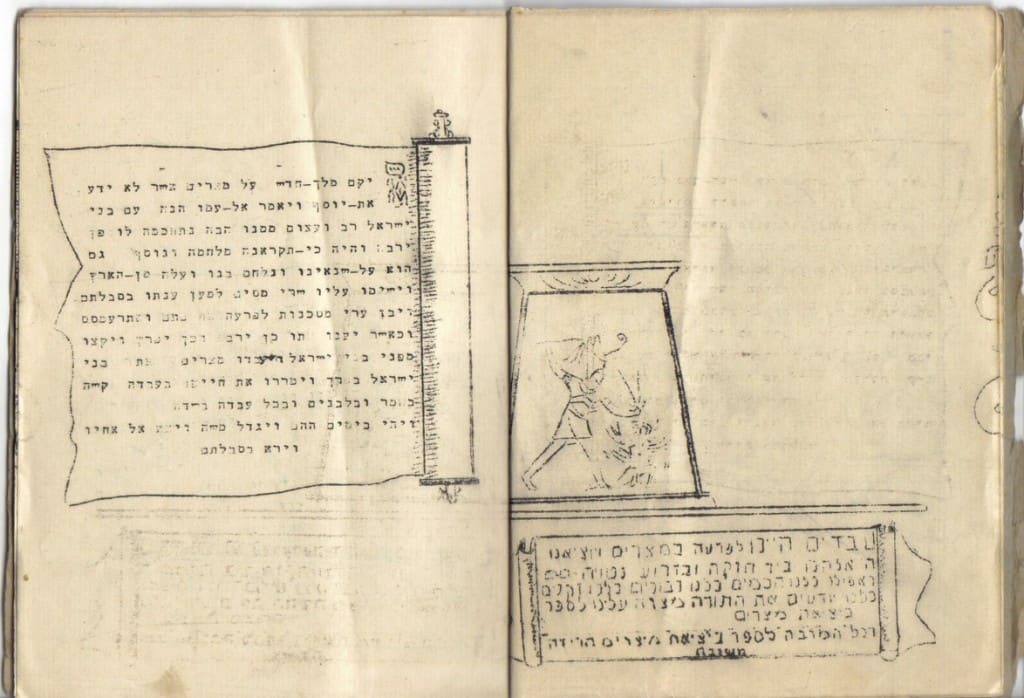 עבדים היינו לפרעה במצרים ויוציאנו
ה אלהנו ביד חזקה ובזרוע נטויה
ואפילו כלנו חכמים כלנו נבונים כלנו זקנים
כלנו יודעים את התורה מצוה עלינו לספר
ביציאת מצרים
וכל המרבה לספר ביציאת מצרים הרי זה
משובח
יקם מלך-חדש על מצרים אשר לא ידע
את-יוסף ויאמר אל-עמו הנה עם בני
ישראל רב ועצום ממנו הבה נתחכמה לו פן
ירבה והיה כי-תקראנה מלחמה ונוסף גם
הוא על-שנאינו ונלחם בנו ועלה מן-הארץ
וישימו עליו שרי מסים למען ענתו בסבלתם
ויבן ערי מסכנות לפרעה את פתם ואתרעמסס
וכאשר יענו אתו כן ירבה וכן יפרץ ויקצו
מפני בני ישראל ויעבדו מצרים את בני
ישראל בפרך וימררו את חייהם בעבדה קשה
בחמר ובלבנים ובכל עבדה בשדה
ויהי בימים ההם ויגדל משה ויצא אל אחיו
וירא בסבלתם